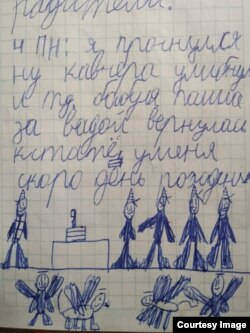 родители.
4 ПН: я прогнулся
ну кавчера улибну
и тд, бабуля пашла
за вадой вернулас
кстате у меня
скоро день рождин
9
Courtesy Image